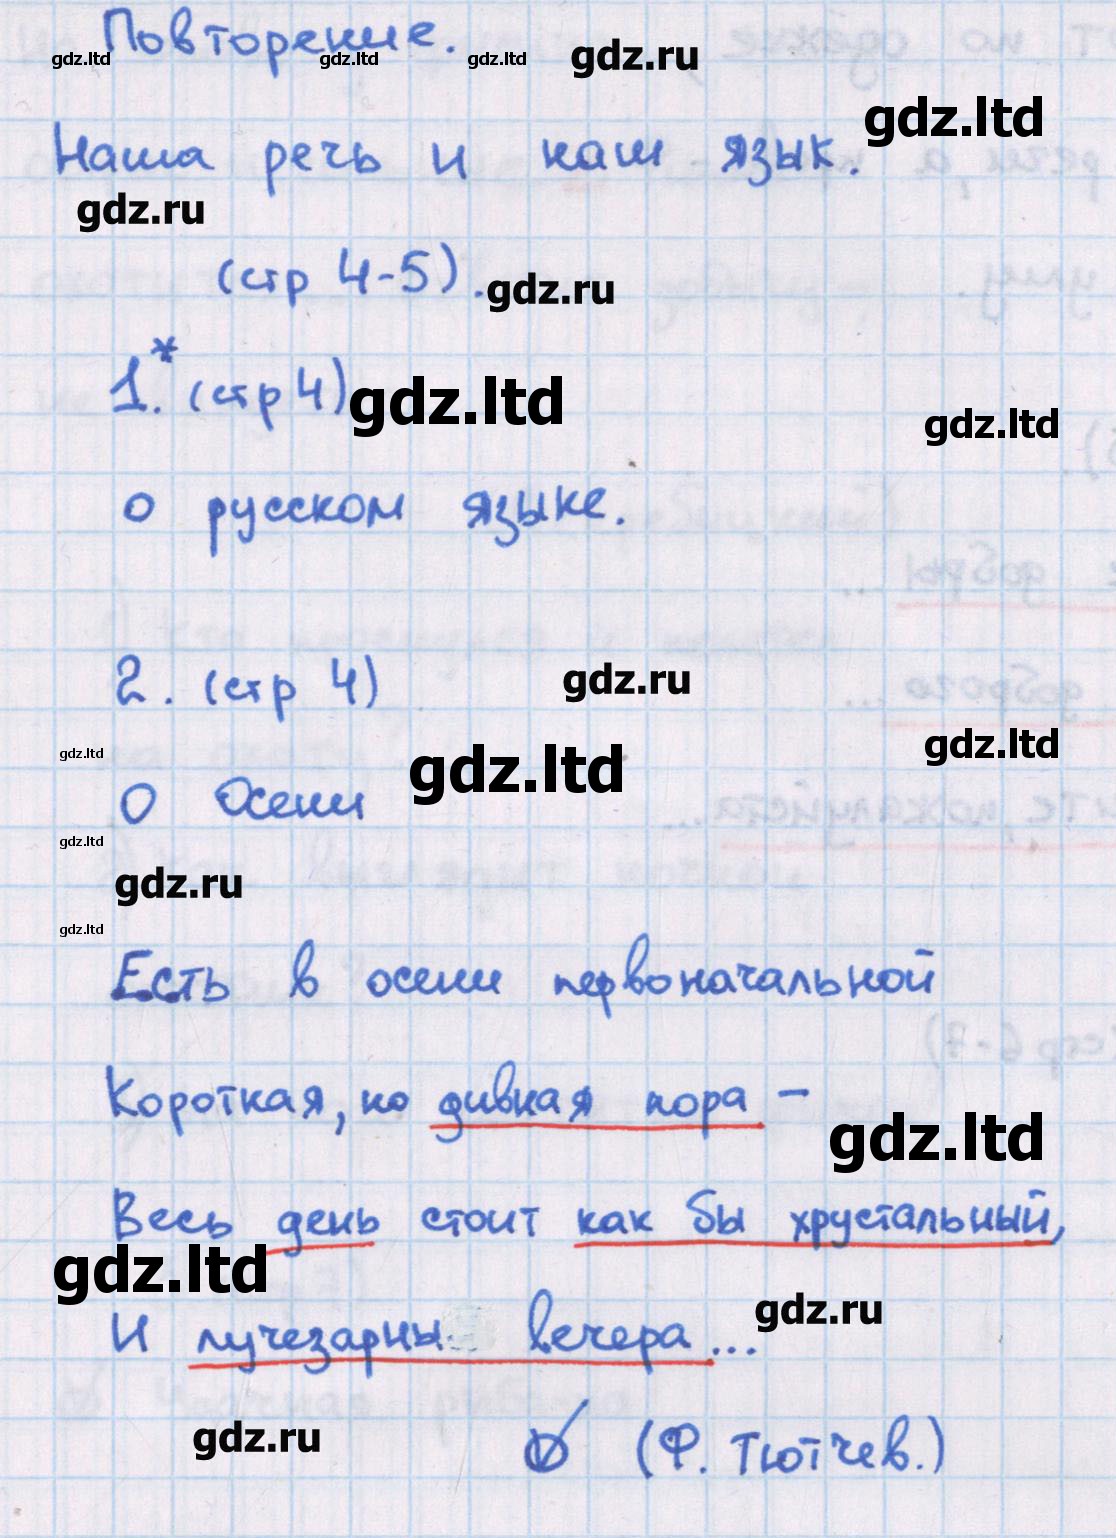 Повторение.
gdz.ltd gdz.ltd gdz.ltd gdz.ru
gdz.ltd
Наша речь и наш язык.
gdz.ru
(стр 4-5).
gdz.ru
1.* (стр 4)
gdz.ltd
gdz.ltd
о русском языке.
2. (стр 4)
gdz.ru
gdz.ltd
gdz.ltd
gdz.ltd
О Осени
gdz.ltd
gdz.ru
gdz.ltd
Есть в осени первоначальной
Короткая, но дивная пора –
gdz.ltd
Весь день стоит как бы хрустальный,
gdz.ltd
gdz.ru
И лучезарны вечера...
gdz.ru
(Ф. Тютчев.)